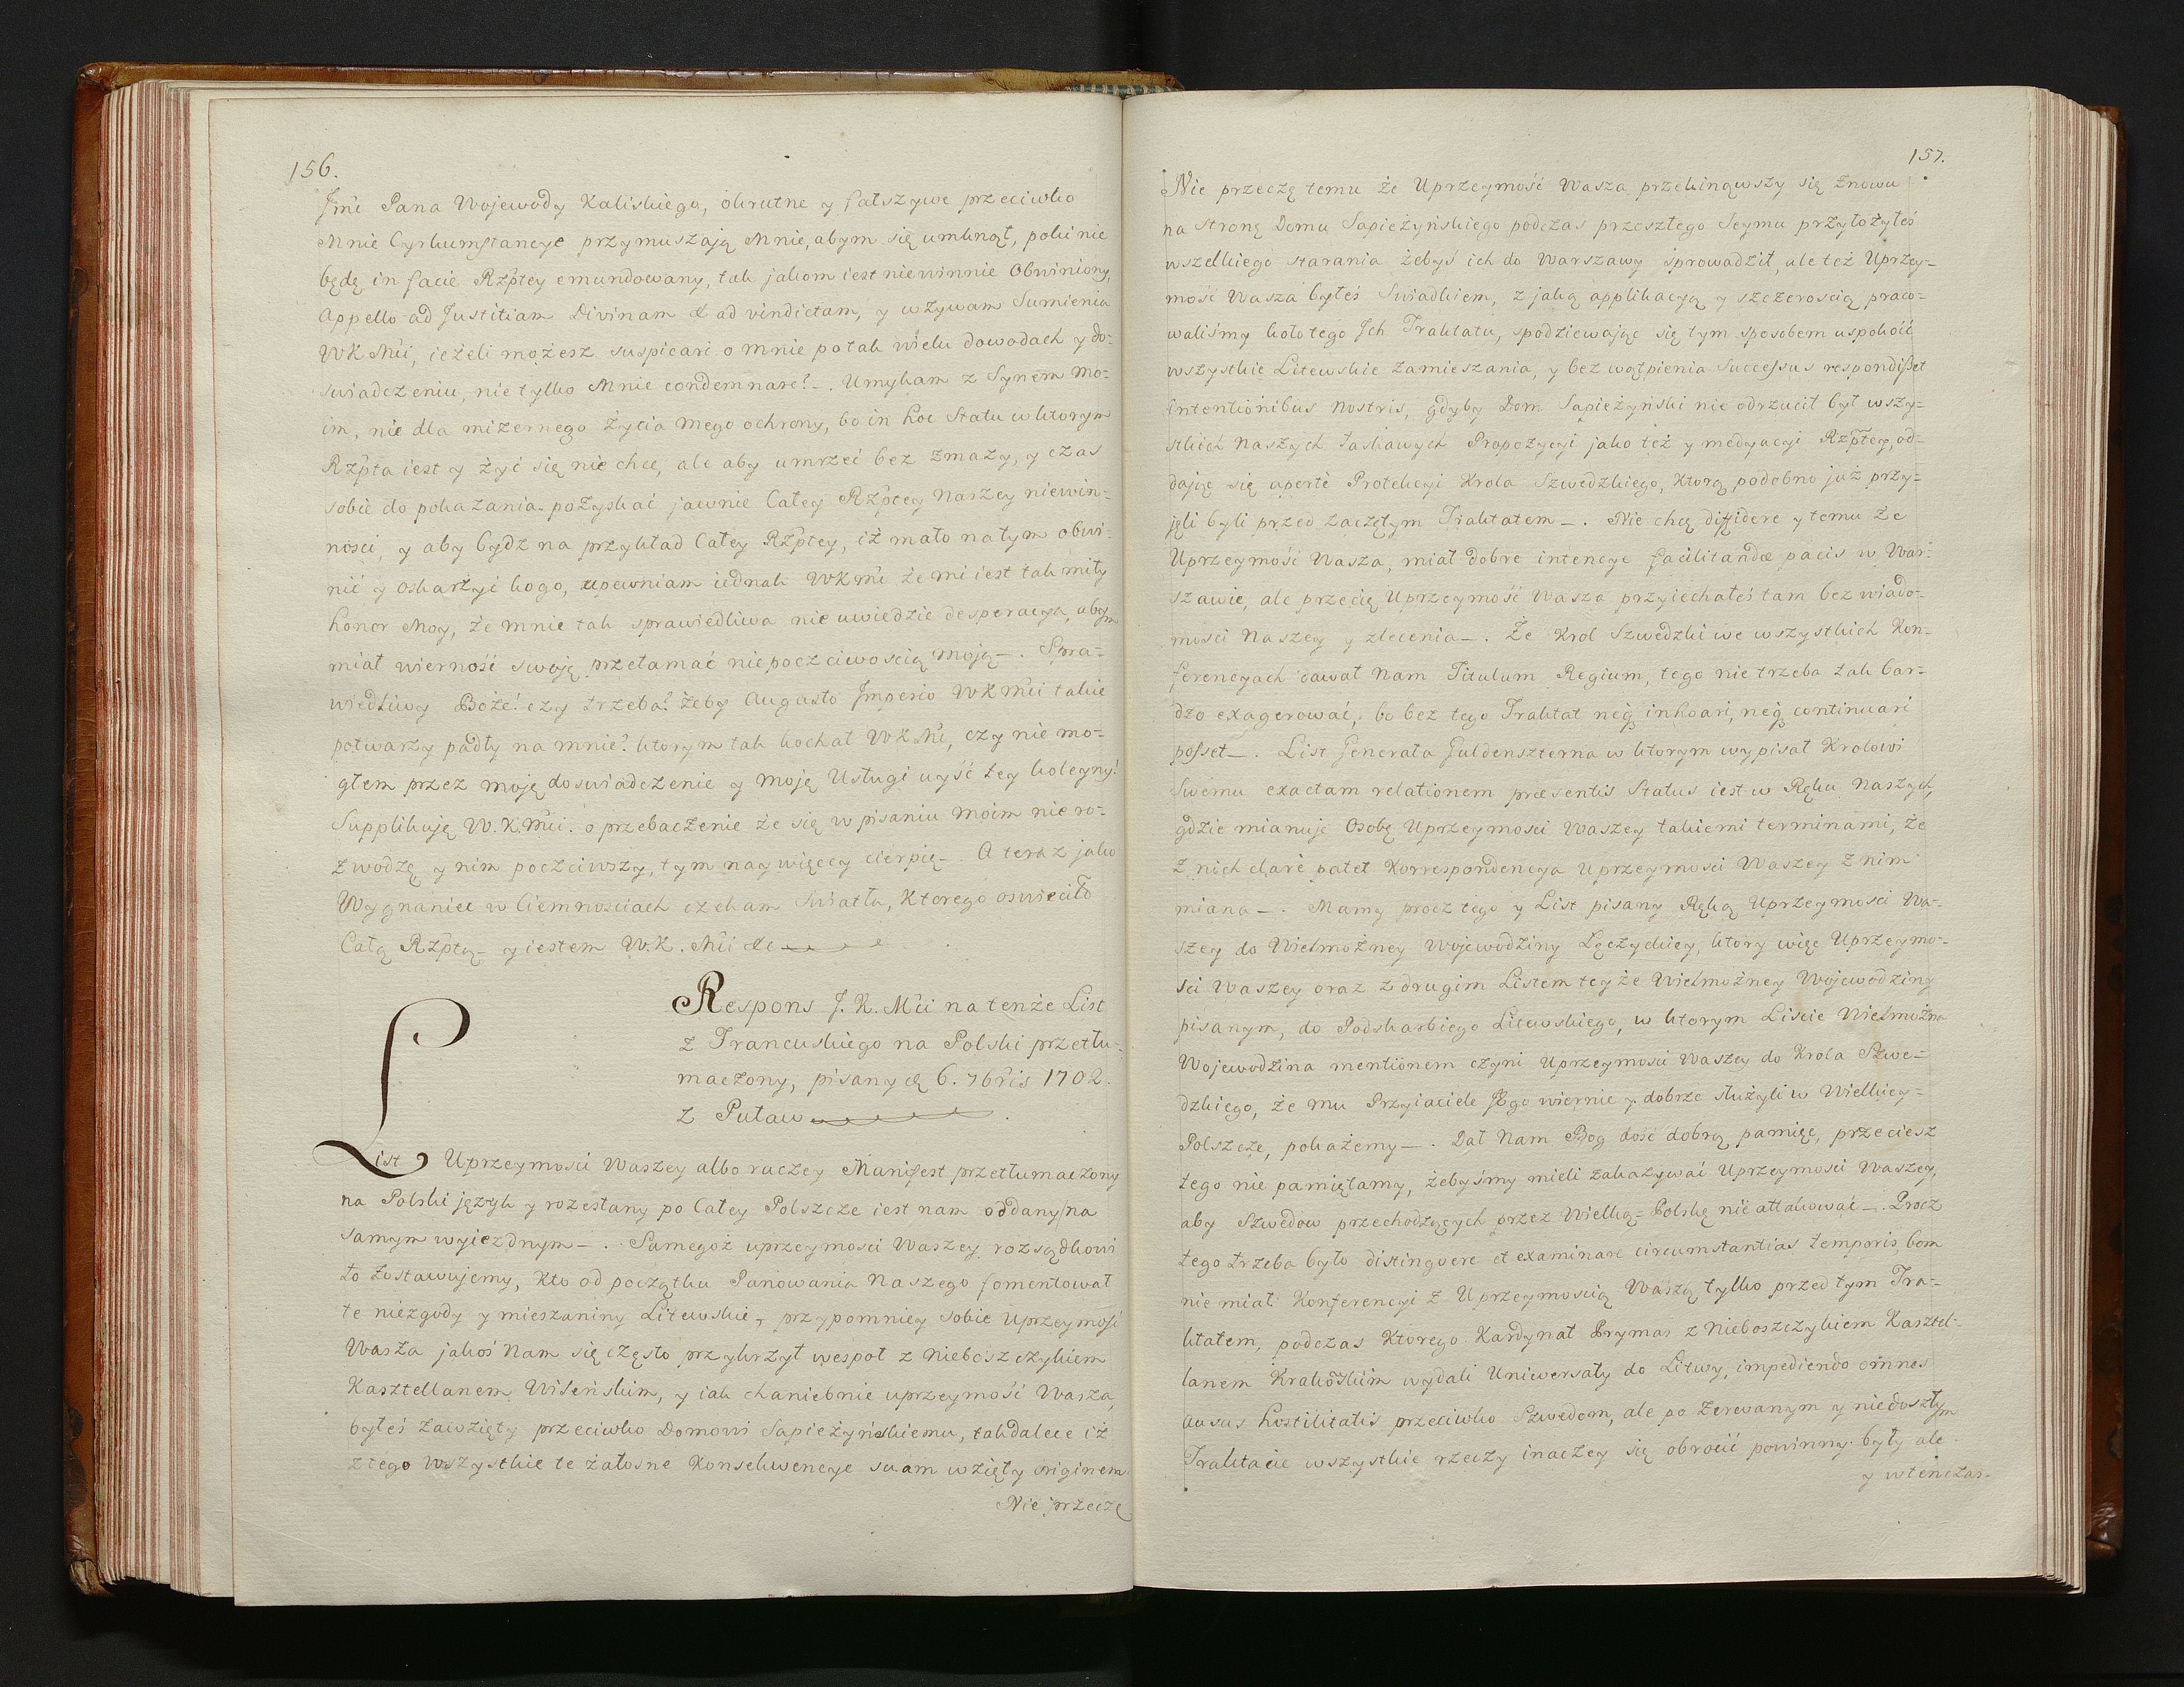 156.
Jmć Pana Wojewody Kaliskiego, okrutne y fałszywe przeciwko
Mnie Cyrkumstancye przymuszają Mnie, abym się umknął, poki nie
będę in facie Rzptey emundowany, tak jakom iest niewinnie Obwiniony,
Appello ad Justitiam Divinam & ad vindictam, y wzywam Sumienia
WK Mći, ieżeli możesz suspicari o mnie po tak wielu dowodach y do=
swiadczeniu, nie tylko Mnie condemnare? _. Umykam z Synem mo=
im, nie dla mizernego Życia mego ochrony, bo in hoc Statu w ktorym
Rzpta iest y żyć się nie chce, ale aby umrzeć bez zmazy, y czas
sobie do pokazania pozyskać jawnie Całey Rzptey Naszey niewin=
nosci, y aby bydz na przykład Całey Rzptey, iż mało na tym obwi=
nić y oskarżyć kogo, upewniam iednak WKMći że mi iest tak miły
honor Moy, że mnie tak sprawiedliwa nie uwiedzie desperacya, abym
miał wierność swoję przełamać niepoczciwoscią moją _. Spra=
wiedliwy Boże! czy trzeba? żeby Augusto Imperio WKMći takie
potwarzy padły na mnie? ktorym tak kochał WKMći, czy nie mo=
głem przez moję doswiadczenie y moję Usługi uyść tey koleyny!
Supplikuję W.K.Mći. o przebaczenie że się w pisaniu moim nie ro=
zwodzę y nim poczciwszy, tym naywięcey cierpię _. A teraz jako
Wygnaniec w Ciemnosciach czekam Swiatła, Ktorego oswiecił
Całą Rzptą _ y iestem W.K.Mći &c
Respons J.K.Mći na tenże List
z Francuskiego na Polski przetłu=
maczony, pisany d. 6. 7bris 1702.
z Puław
List Uprzeymosci Waszey albo raczey Manifest przetłumaczony
na Polski język y rozesłany po Całey Polszcze iest nam oddany na
samym wyiezdnym _. Samegoż uprzeymosci Waszey rozsądkowi
to zostawujemy, Kto od początku Panowania Naszego fomentował
te niezgody y mieszaniny Litewskie, przypomniey sobie Uprzeymość
Wasza jakoś Nam się często przykrzył wespoł z Nieboszczykiem
Kasztellanem Wileńskim, y iak chaniebnie uprzeymość Wasza,
byłeś zawzięty przeciwko Domowi Sapieżyńskiemu, takdalece iż
z tego wszystkie te żałosne Konsekwencye suam wzięły originem.
Nie przeczę
157.
Nie przeczę temu że Uprzeymość Wasza przekinąwszy się znowu
na stronę Domu Sapieżyńskiego podczas przeszłego Seymu przyłożyłeś
wszelkiego starania żebyś ich do Warszawy sprowadził, ale też Uprzey=
mość Wasza byłeś Swiadkiem, z jaką applikacyą y szczeroscią praco=
waliśmy koło tego Jch Traktatu, spodziewając się tym sposobem uspokoić
wszystkie Litewskie zamieszania, y bez wątpienia Successus respondisset
intentionibus Nostris, gdyby Dom Sapieżyński nie odrzucił był wszy=
stkich Naszych łaskawych Propozycyi jako też y medyacyi Rzptey, od=
dając się apertè Protekcyi Krola Szwedzkiego, Ktorą podobno już przy=
jęli byli przed zaczętym Traktatem _. Nie chcę diffidere y temu że
Uprzeymość Wasza, miał dobre intencye facilitandæ pacis w War=
szawie, ale przecię Uprzeymość Wasza przyiechałeś tam bez wiado=
mosci Naszey y zlecenia _. Że Krol Szwedzki we wszystkich Kon=
ferencyach dawał Nam Titulum Regium, tego nie trzeba tak bar=
dzo exagerować, bo bez tego Traktat neq inhoari, neq continuari
posset _. List Generała Guldenszterna w ktorym wypisał Krolowi
Swemu exactam relationem præsentis Status iest w Ręku Naszych,
gdzie mianuje Osobę Uprzeymosci Waszey takiemi terminami, że
z nich clarè patet Korrespondencya Uprzeymosci Waszey z nim
miana _. Mamy procz tego y List pisany Ręką Uprzeymosci Wa=
szey do Wielmożney Wojewodziny Łęczyckiey, ktory więc Uprzeymo=
sci Waszey oraz z drugim Listem teyże Wielmożney Wojewodziny
pisanym, do Podskarbiego Litewskiego, w ktorym Liscie Wielmożna
Wojewodzina mentionem czyni Uprzeymosci Waszey do Krola Szwe=
dzkiego, że mu Przyiaciele Jego wiernie y dobrze służyli w Wielkiey=
Polszcze, pokażemy _. Dał Nam Bog dość dobrą pamięć, przeciesz
tego nie pamiętamy, żebyśmy mieli zakazywać Uprzeymosci Waszey,
aby Szwedow przechodzących przez Wielką= Polskę nie attakować _. Procz
tego trzeba było distinguere et examinare circumstantias temporis, bom
nie miał Konferencyi z Uprzeymoscią Waszą tylko przed tym Tra=
ktatem, podczas Ktorego Kardynał Prymas z Nieboszczykiem Kasztel=
lanem Krakowskim wydali Uniwersały do Litwy, impediendo omnes
ausus hostilitatis przeciwko Szwedom, ale po Zerwanym y niedoszłym
Traktacie wszystkie rzeczy inaczey się obrocić powinny były ale
y wtenczas.